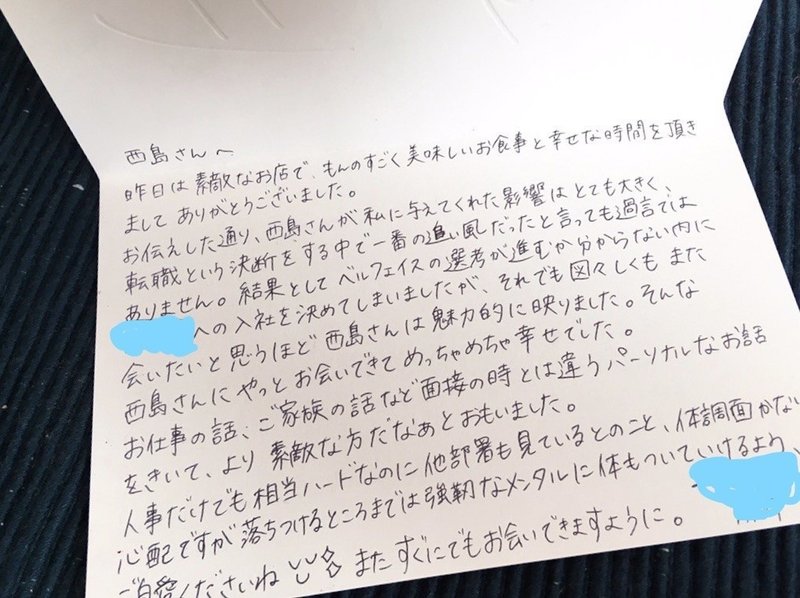 西島さんへ
昨日は素敵なお店で、ものすごく美味しいお食事と幸せな時間を頂き
まして ありがとうございました。
お伝えした通り、西島さんが私に与えてくれた影響はとても大きく、
転職という決断をする中で一番の追い風だったと言っても過言では
ありません。結果としてベルフェイスの選考が進むか分からない内に
への入社を決めてしまいましたが、それでも図々しくもまた
会いたいと思うほど西島さんは魅力的に映りました。そんな
西島さんにやっとお会いできてめっちゃめちゃ幸せでした。
お仕事の話、ご家族の話など面接の時とは違うパーソナルなお話
をきいて、より素敵な方だなあとおもいました。
人事だけでも相当ハードなのに他部署も見ているとのこと、体調面かない
心配ですが落ちつけるところまでは強靭なメンタルに体もついていけるよう、
ご自愛くださいね またすぐにでもお会いできますように。